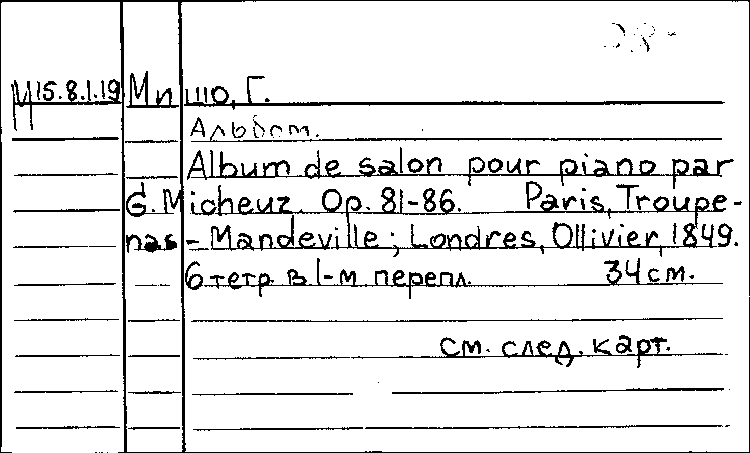 М 15.8.1.19 Мишо, Г.
Альбом.
Album de salon pour piano par
G. Micheuz. Op. 81-86. Paris, Troupe-
nas - Mandeville; Londres, Ollivier, 1849.
6 тетр. в 1-м перепл. 34 см.
см. след. карт.